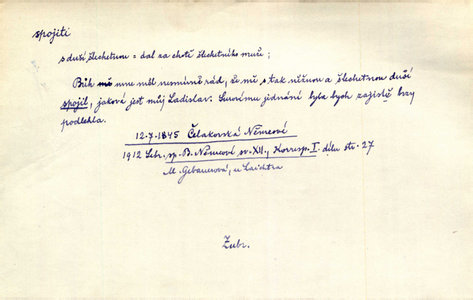 spojiti
s duší šlechetnou = dal za chotě šlechetného muže;
Bůh mne měl nesmírně rád, že mě s tak něžnou a šlechetnou duší
spojil, jaková jest můj Ladislav. Surovému jednání byla bych zajisté brzy
podlehla.
12.7.1845 Čelakovská Němcové
1912 Sebr. sp. B. Němcové sv. XII., Korresp. I. dílu str. 27
M. Gebauerová, u Laichtra
Zubr.